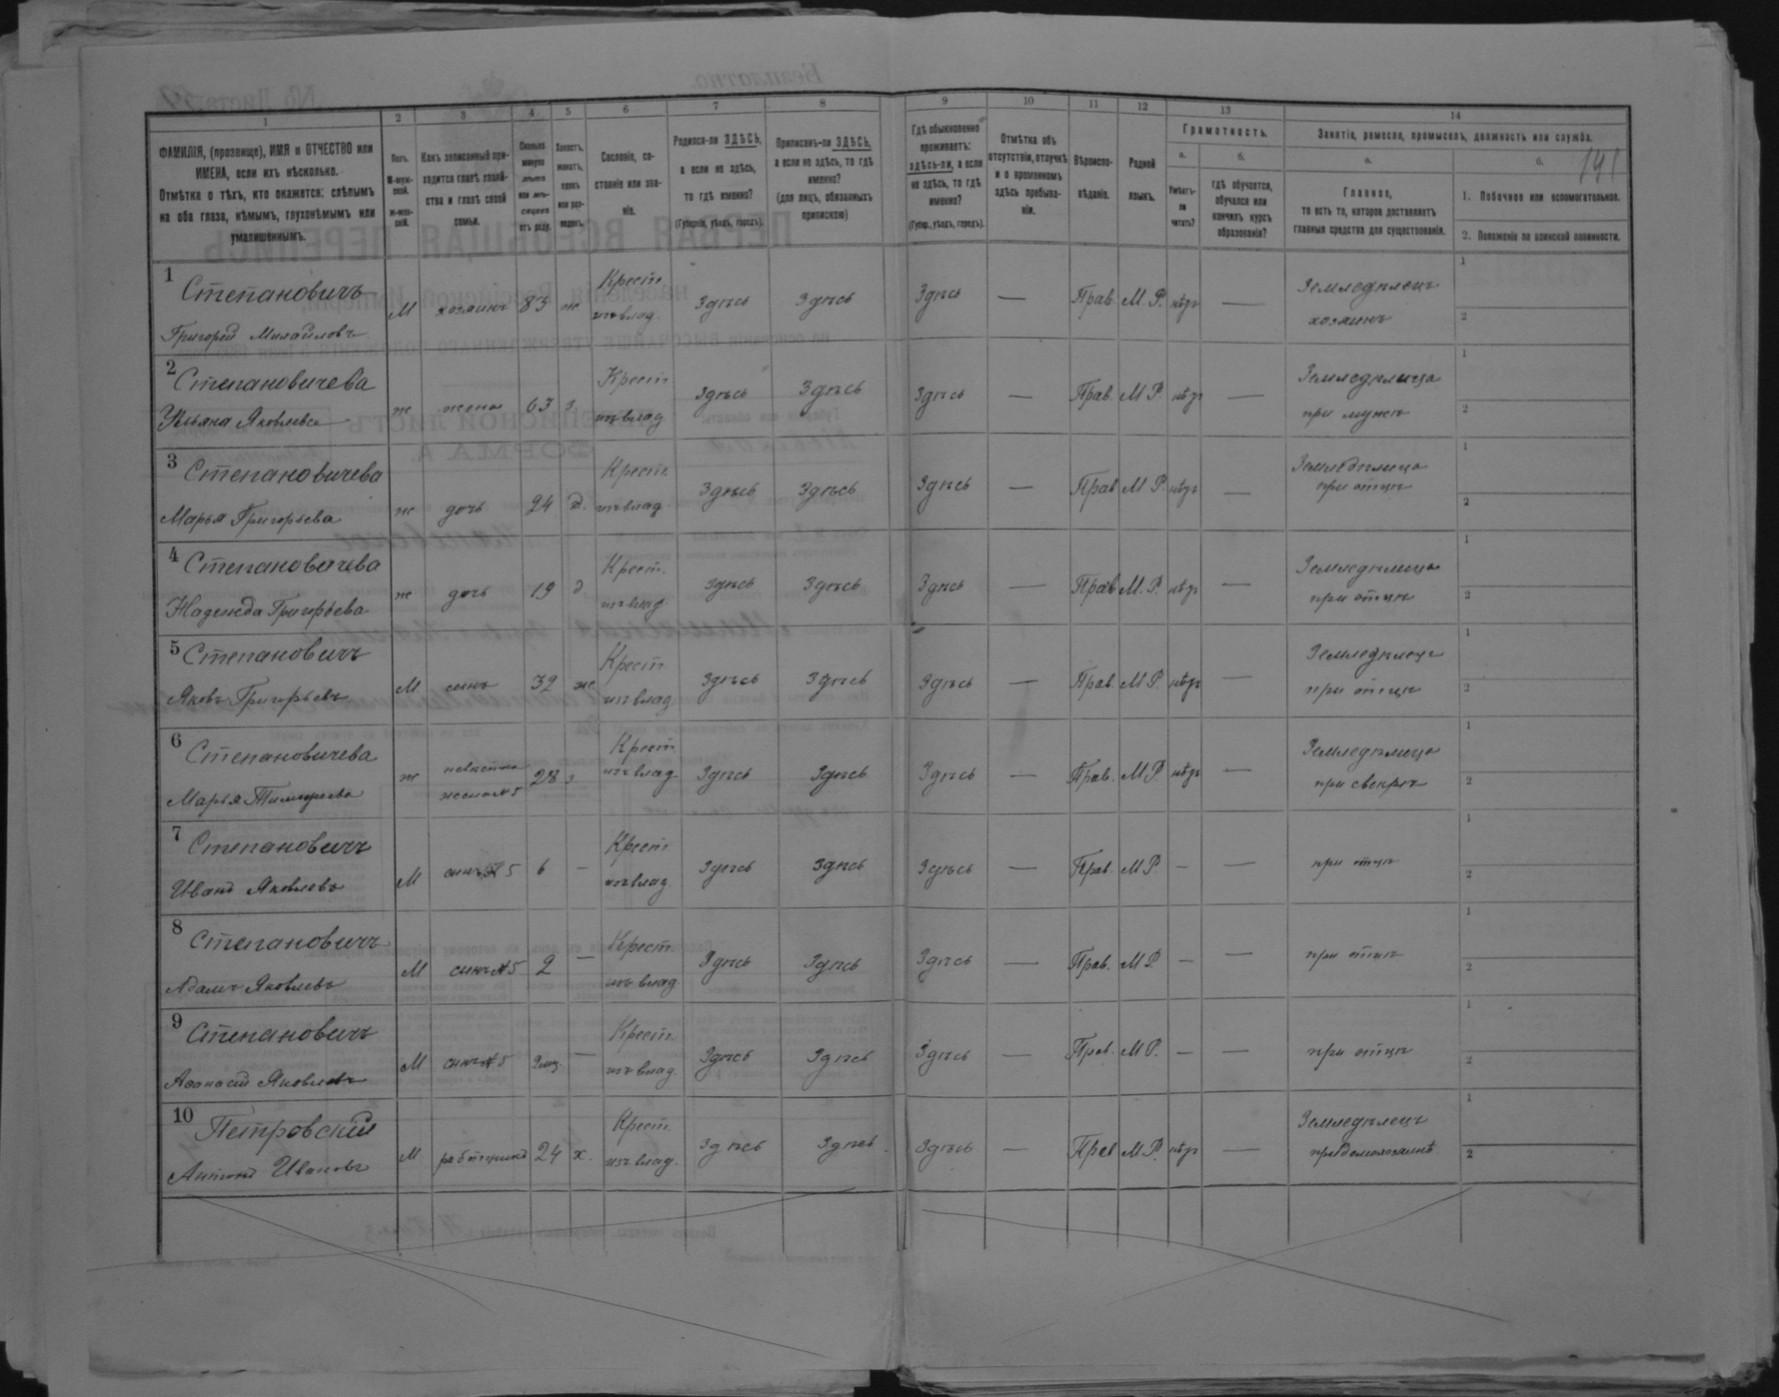 1 2 3 4 5 6 7 8 9 10 11 12 13 14
ФАМИЛІЯ, (прозвище), ИМЯ и ОТЧЕСТВО или ИМЕНА, если ихъ нѣсколько.
Отмѣтка о тѣхъ, кто окажется: слѣпымъ на оба глаза, нѣмымъ, глухонѣмымъ или умалишеннымъ.
Полъ. М-мужской. Ж-женскій.
Какъ записанный приходится главѣ хозяйства и главѣ своей семьи.
Сколько минуло лѣтъ или мѣсяцевъ отъ роду.
Холостъ, женатъ, вдовъ или разведенъ.
Сословіе, состояніе или званіе.
Родился-ли ЗДѢСЬ, а если не здѣсь, то гдѣ именно? (Губернія, уѣздъ, городъ).
Приписанъ-ли ЗДѢСЬ, а если не здѣсь, то гдѣ именно? (для лицъ, обязанныхъ припискою)
Гдѣ обыкновенно проживаетъ: здѣсь-ли, а если не здѣсь, то гдѣ именно? (Губер., уѣздъ, городъ).
Отмѣтка объ отсутствіи, отлучкѣ и о временномъ здѣсь пребываніи.
Вѣроисповѣданіе.
Родной языкъ.
Грамотность.
а. Умѣетъ-ли читать?
б. гдѣ обучается, обучался или кончилъ курсъ образованія?
Занятіе, ремесло, промыселъ, должность или служба.
а. Главное, то есть то, которое доставляетъ главныя средства для существованія.
б.
1. Побочное или вспомогательное.
2. Положеніе по воинской повинности.
191
1 Степановичъ Григорій Михайловъ М хозяинъ 83 ж Крест. изъ влад. Здѣсь Здѣсь Здѣсь — Прав. М. Р. нѣтъ — Земледѣлецъ хозяинъ 1 2
2 Степановичева Ульяна Яковлева ж жена 63 з. Крест. изъ влад. Здѣсь Здѣсь Здѣсь — Прав. М. Р. нѣтъ — Земледѣлица при мужѣ 1 2
3 Степановичева Марья Григорьева ж дочь 24 д. Крест. изъ влад. Здѣсь Здѣсь Здѣсь — Прав. М. Р. нѣтъ — Земледѣлица при отцѣ 1 2
4 Степановичева Надежда Григорьева ж дочь 19 д Крест. изъ влад. Здѣсь Здѣсь Здѣсь — Прав. М. Р. нѣтъ — Земледѣлица при отцѣ 1 2
5 Степановичъ Яковъ Григорьевъ М сынъ 32 ж Крест. изъ влад Здѣсь Здѣсь Здѣсь — Прав. М. Р. нѣтъ — Земледѣлецъ при отцѣ 1 2
6 Степановичева Марья Тимофеева ж невѣстка жена № 5 28 з Крест. изъ влад Здѣсь Здѣсь Здѣсь — Прав. М. Р. нѣтъ — Земледѣлица при свекрѣ 1 2
7 Степановичъ Иванъ Яковлевъ М сынъ № 5 6 — Крест. изъ влад. Здѣсь Здѣсь Здѣсь — Прав. М. Р. — — при отцѣ 1 2
8 Степановичъ Адамъ Яковлевъ М сынъ № 5 2 — Крест. изъ влад Здѣсь Здѣсь Здѣсь — Прав. М. Р. — — при отцѣ 1 2
9 Степановичъ Аѳанасій Яковлевъ М сынъ № 5 — Крест. изъ влад. Здѣсь Здѣсь Здѣсь — Прав. М. Р. — — при отцѣ 1 2
10 Петровскій Антонъ Ивановъ М работникъ 24 х. Крест. изъ влад. Здѣсь Здѣсь Здѣсь — Прав М. Р. нѣтъ — Земледѣлецъ 1 2